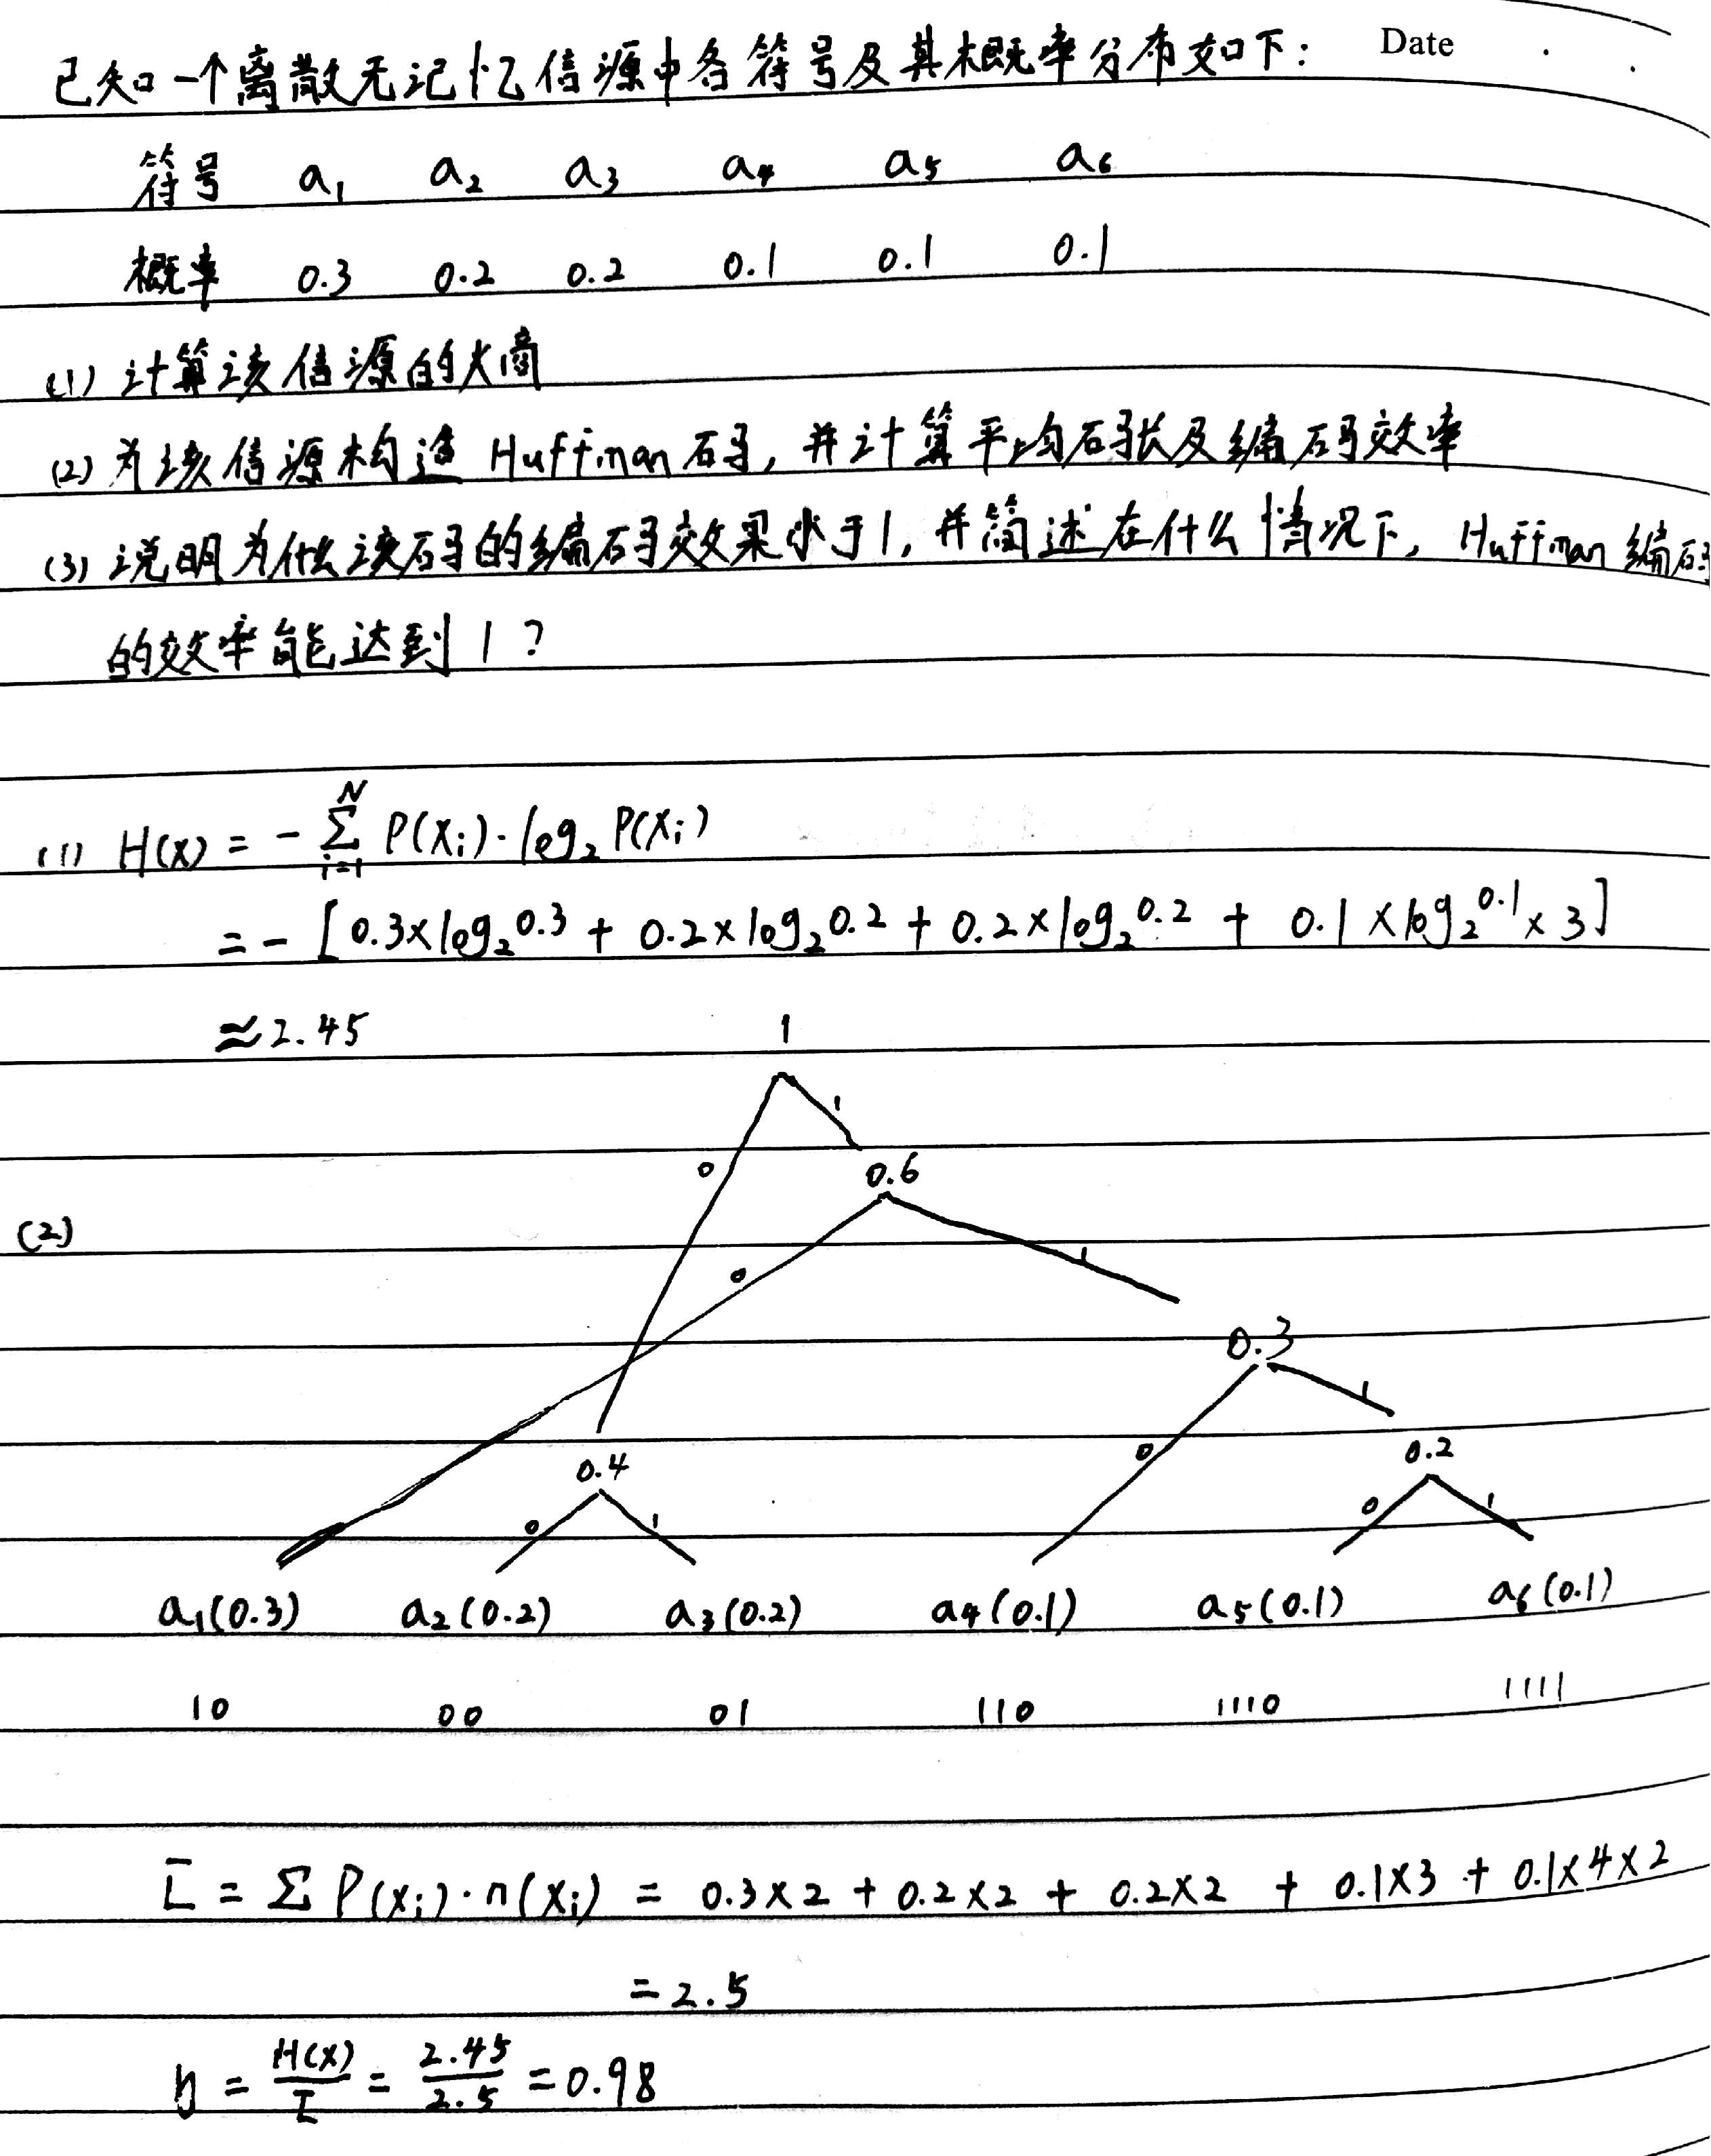 Date
已知一个离散无记忆信源中各符号及其概率分布如下:
符号 a₁ a₂ a₃ a₄ a₅ a₆
概率 0.3 0.2 0.2 0.1 0.1 0.1
(1) 计算该信源的熵
(2) 为该信源构造 Huffman 码, 并计算平均码长及编码效率
(3) 说明为什么该码的编码效果小于1, 并简述在什么情况下, Huffman 编码
的效率能达到 1 ?
(1) H(x) = - \sum_{i=1}^{N} P(x_i)·log₂ P(x_i)
= - [0.3×log₂0.3 + 0.2×log₂0.2 + 0.2×log₂0.2 + 0.1×log₂0.1×3]
≈ 2.45
1
0 1
0.6
(2)
0 1
0.3
0 1
0.4 0.2
0 1 0 1
a₁(0.3) a₂(0.2) a₃(0.2) a₄(0.1) a₅(0.1) a₆(0.1)
10 00 01 110 1110 1111
L̄ = Σ P(x_i)·n(x_i) = 0.3×2 + 0.2×2 + 0.2×2 + 0.1×3 + 0.1×4×2
= 2.5
η = \frac{H(x)}{L̄} = \frac{2.45}{2.5} = 0.98